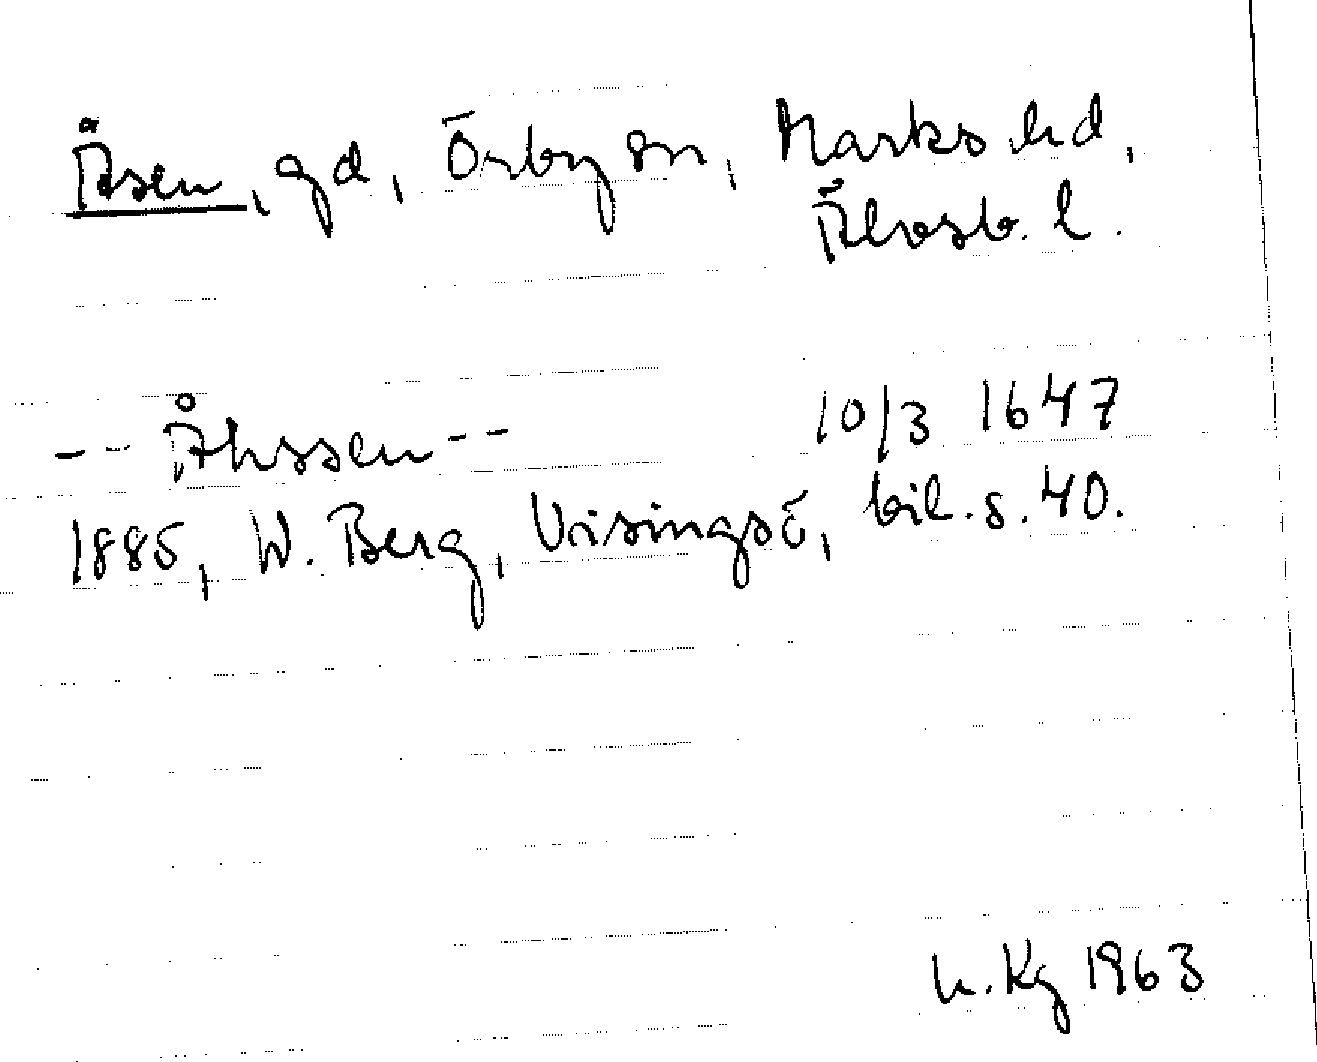 Åsen, gd, Örby sn, Marks hd,
Älvsb. l.
-- Åhssen --
10/3 1647
1885, W. Berg, Visingsö, bil. s. 40.
h. Kg 1963